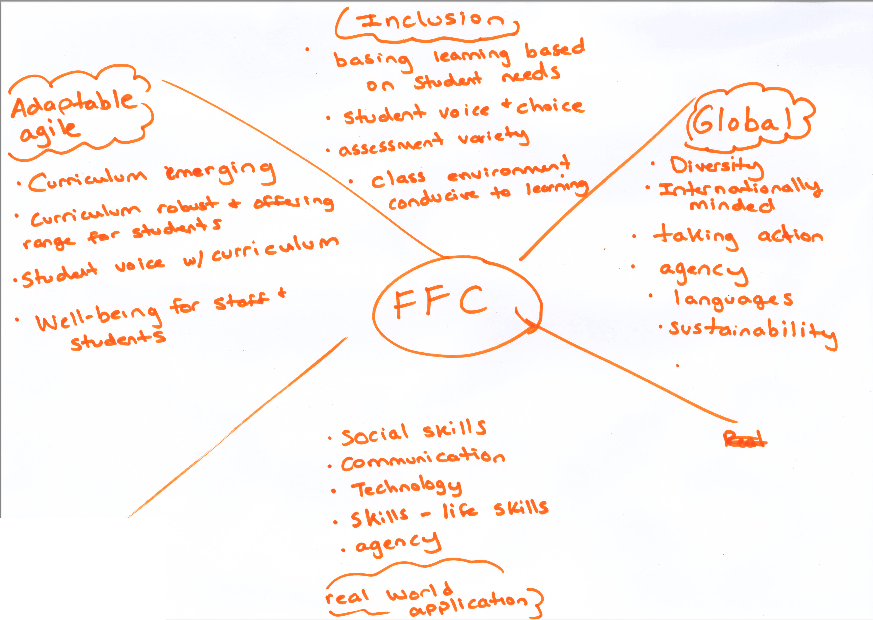 Inclusion
• basing learning based
on student needs
• student voice + choice
• assessment variety
• class environment
conducive to learning
Adaptable
agile
• Curriculum emerging
• Curriculum robust + offering
range for students
• Student voice w/ curriculum
• Well-being for staff +
students
Global
• Diversity
• Internationally
minded
• taking action
• agency
• languages
• sustainability
•
FFC
• Social skills
• Communication
• Technology
• Skills - life skills
• agency
real world
application